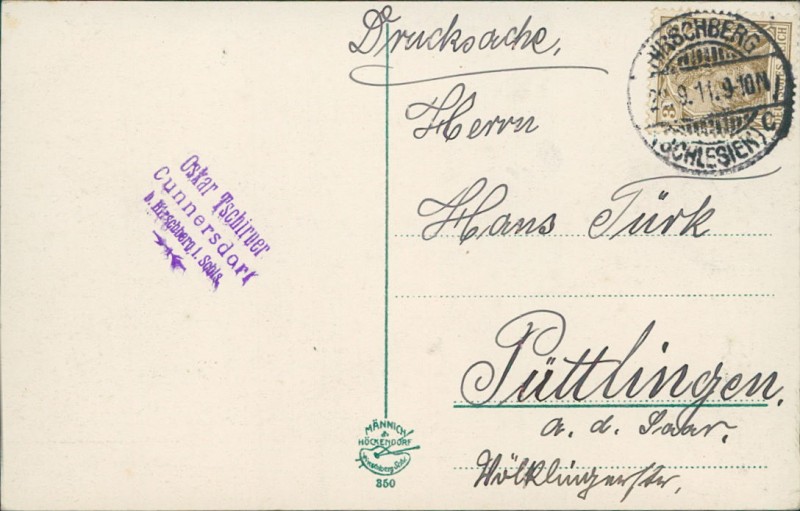 Drucksache,
Herrn
Hans Türk
Püttlingen,
a. d. Saar,
Völklingerstr,
HIRSCHBERG
9.11.9-10N.
(SCHLESIEN) C
3
Oskar Tschirner
Cunnersdorf
b. Hirschberg i. Schls.
MÄNNICH
&
HÖCKENDORF
Hirschberg, Schl.
350